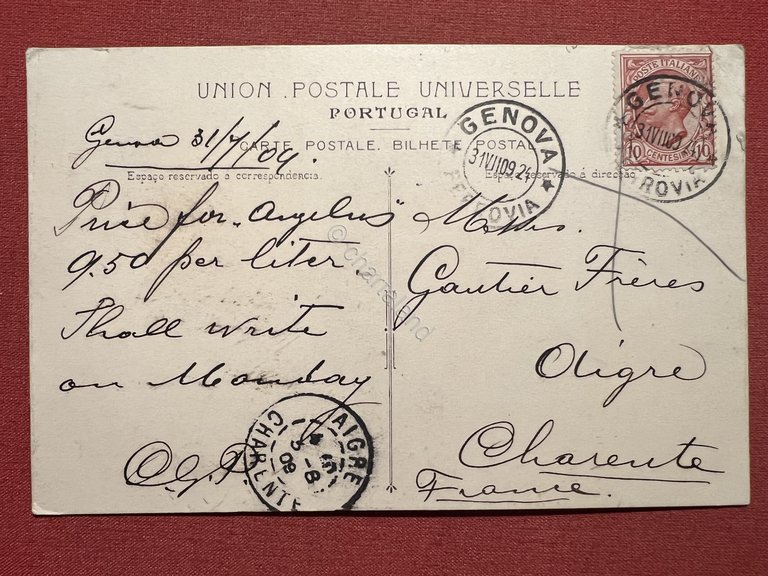 UNION POSTALE UNIVERSELLE
PORTUGAL
CARTE POSTALE. BILHETE POSTAL
Espaço reservado á correspondencia.
Espaço reservado á direcção
Genova 31/7/09.
Price for "Angelus"
9.50 per liter.
Shall write
on Monday
Messrs.
Gautier Frères
Aigre
Charente
France.
POSTE ITALIANE
10 CENTESIMI 10
GENOVA
31VII09.21
FERROVIA
GENOVA
FERROVIA
AIGRE
3-8
09
CHARENTE
© charnaland